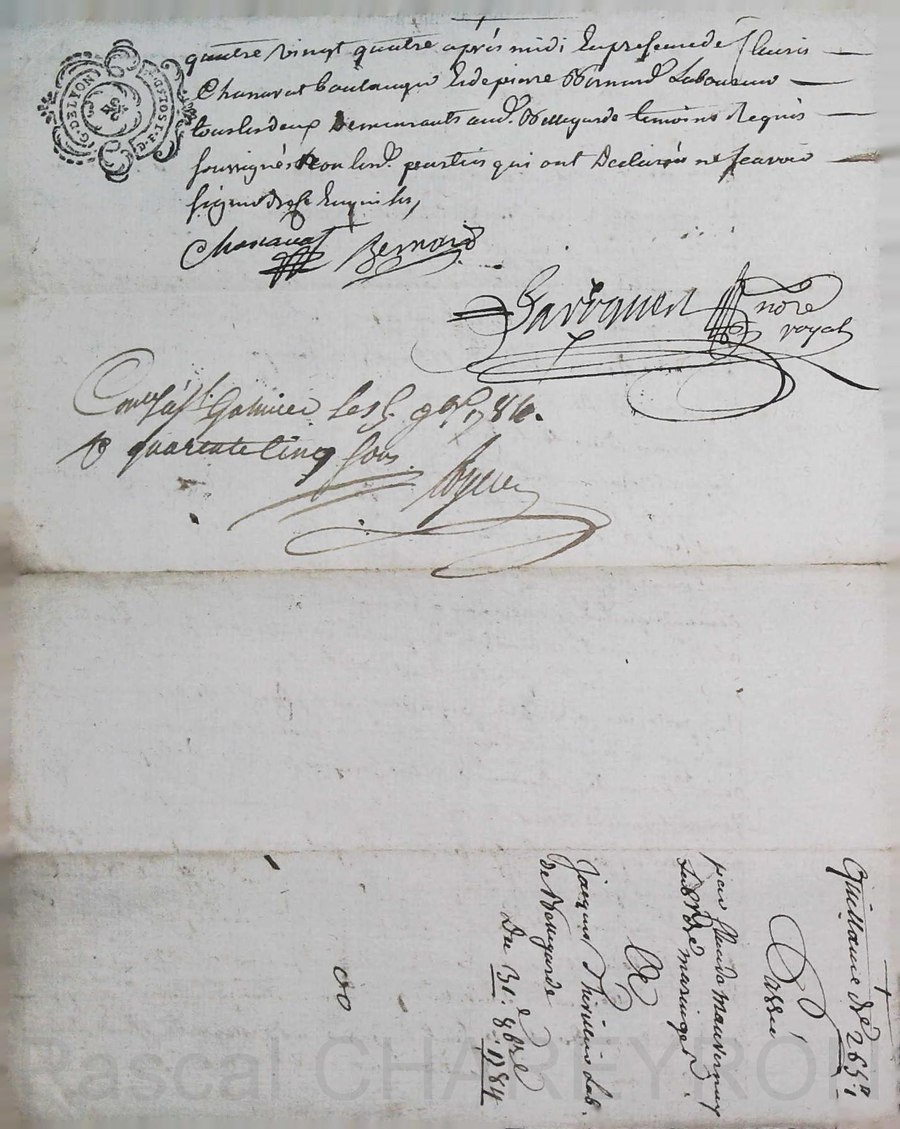 G. DE LYON
D.F. 1 SOL 4 D
quatre vingt quatre après midi En presence de fleuris
Chanavat boulanger Et de pierre Bernard Laboureur
tous les deux Demeurants aud. Bellegarde temoins Requis
soussignés Non les d. parties qui ont Declarées ne scavoir
signer De ce Enquis les,
Chanavat Bernard
nore
royal
Con.lé à st Galmier Les 5. 9bre 1784.
R quarente Cinq sous
Quittance de 265ll
Passé
par Claude mauvernay
De maringes
A
jacques Lab.
de Bellegarde
Du 31. 8bre 1784
Pascal CHAREYRON